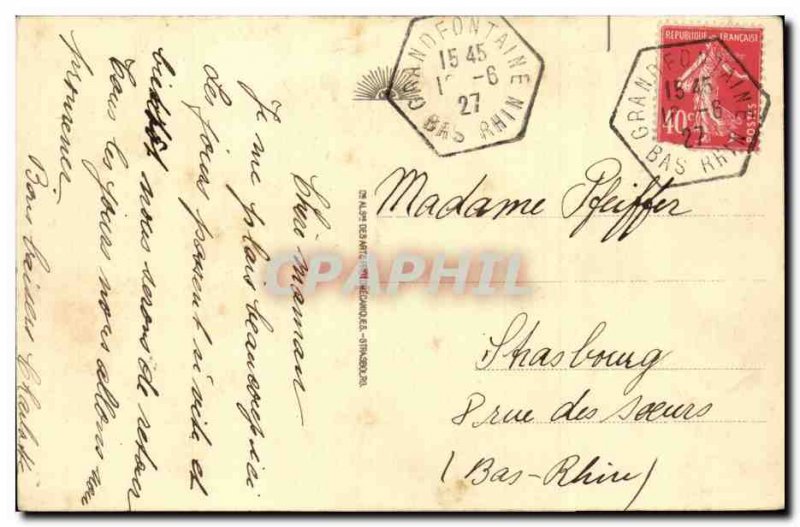 Chère maman
Je me plais beaucoup ici
Les jours passent si vite et
bientôt nous serons de retour
Tous les jours nous allons en
promener
Bons baisers
GRANDFONTAINE
15 45
-6
27
BAS RHIN
REPUBLIQUE FRANÇAISE
40c
POSTES
GRANDFONTAINE
15 45
-6
27
BAS RHIN
Madame Pfeiffer
Strasbourg
8 rue des sœurs
(Bas-Rhin)
DES ARTS MÉCANIQUES.-STRASBOURG.
CPAPHIL